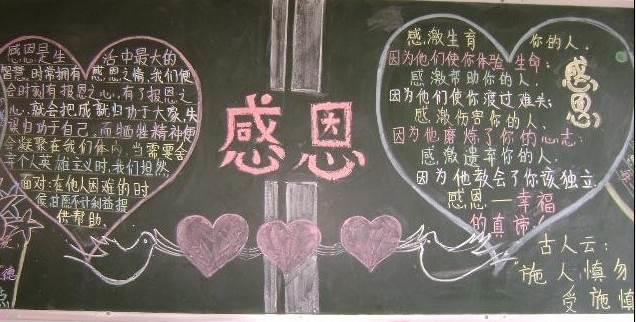 感恩是生活中最大的
智慧.时常拥有感恩之情,我们便
会时刻有报恩之心,有了报恩之
心,就会把成就归功于大家,失
误归功于自己,而牺牲精神便
会凝聚在我们体内,当需要舍
弃个人英雄主义时,我们坦然
面对:在他人困难的时
候,甘愿不计利益提
供帮助.
感恩
感激生育你的人.
因为他们使你体验生命;
感激帮助你的人.
因为他们使你渡过难关;
感激伤害你的人.
因为他磨炼了你的心志;
感激遗弃你的人.
因为他教会了你该独立.
感恩一幸福
的真谛!
感恩
古人云:
"施人慎勿
受施慎
德